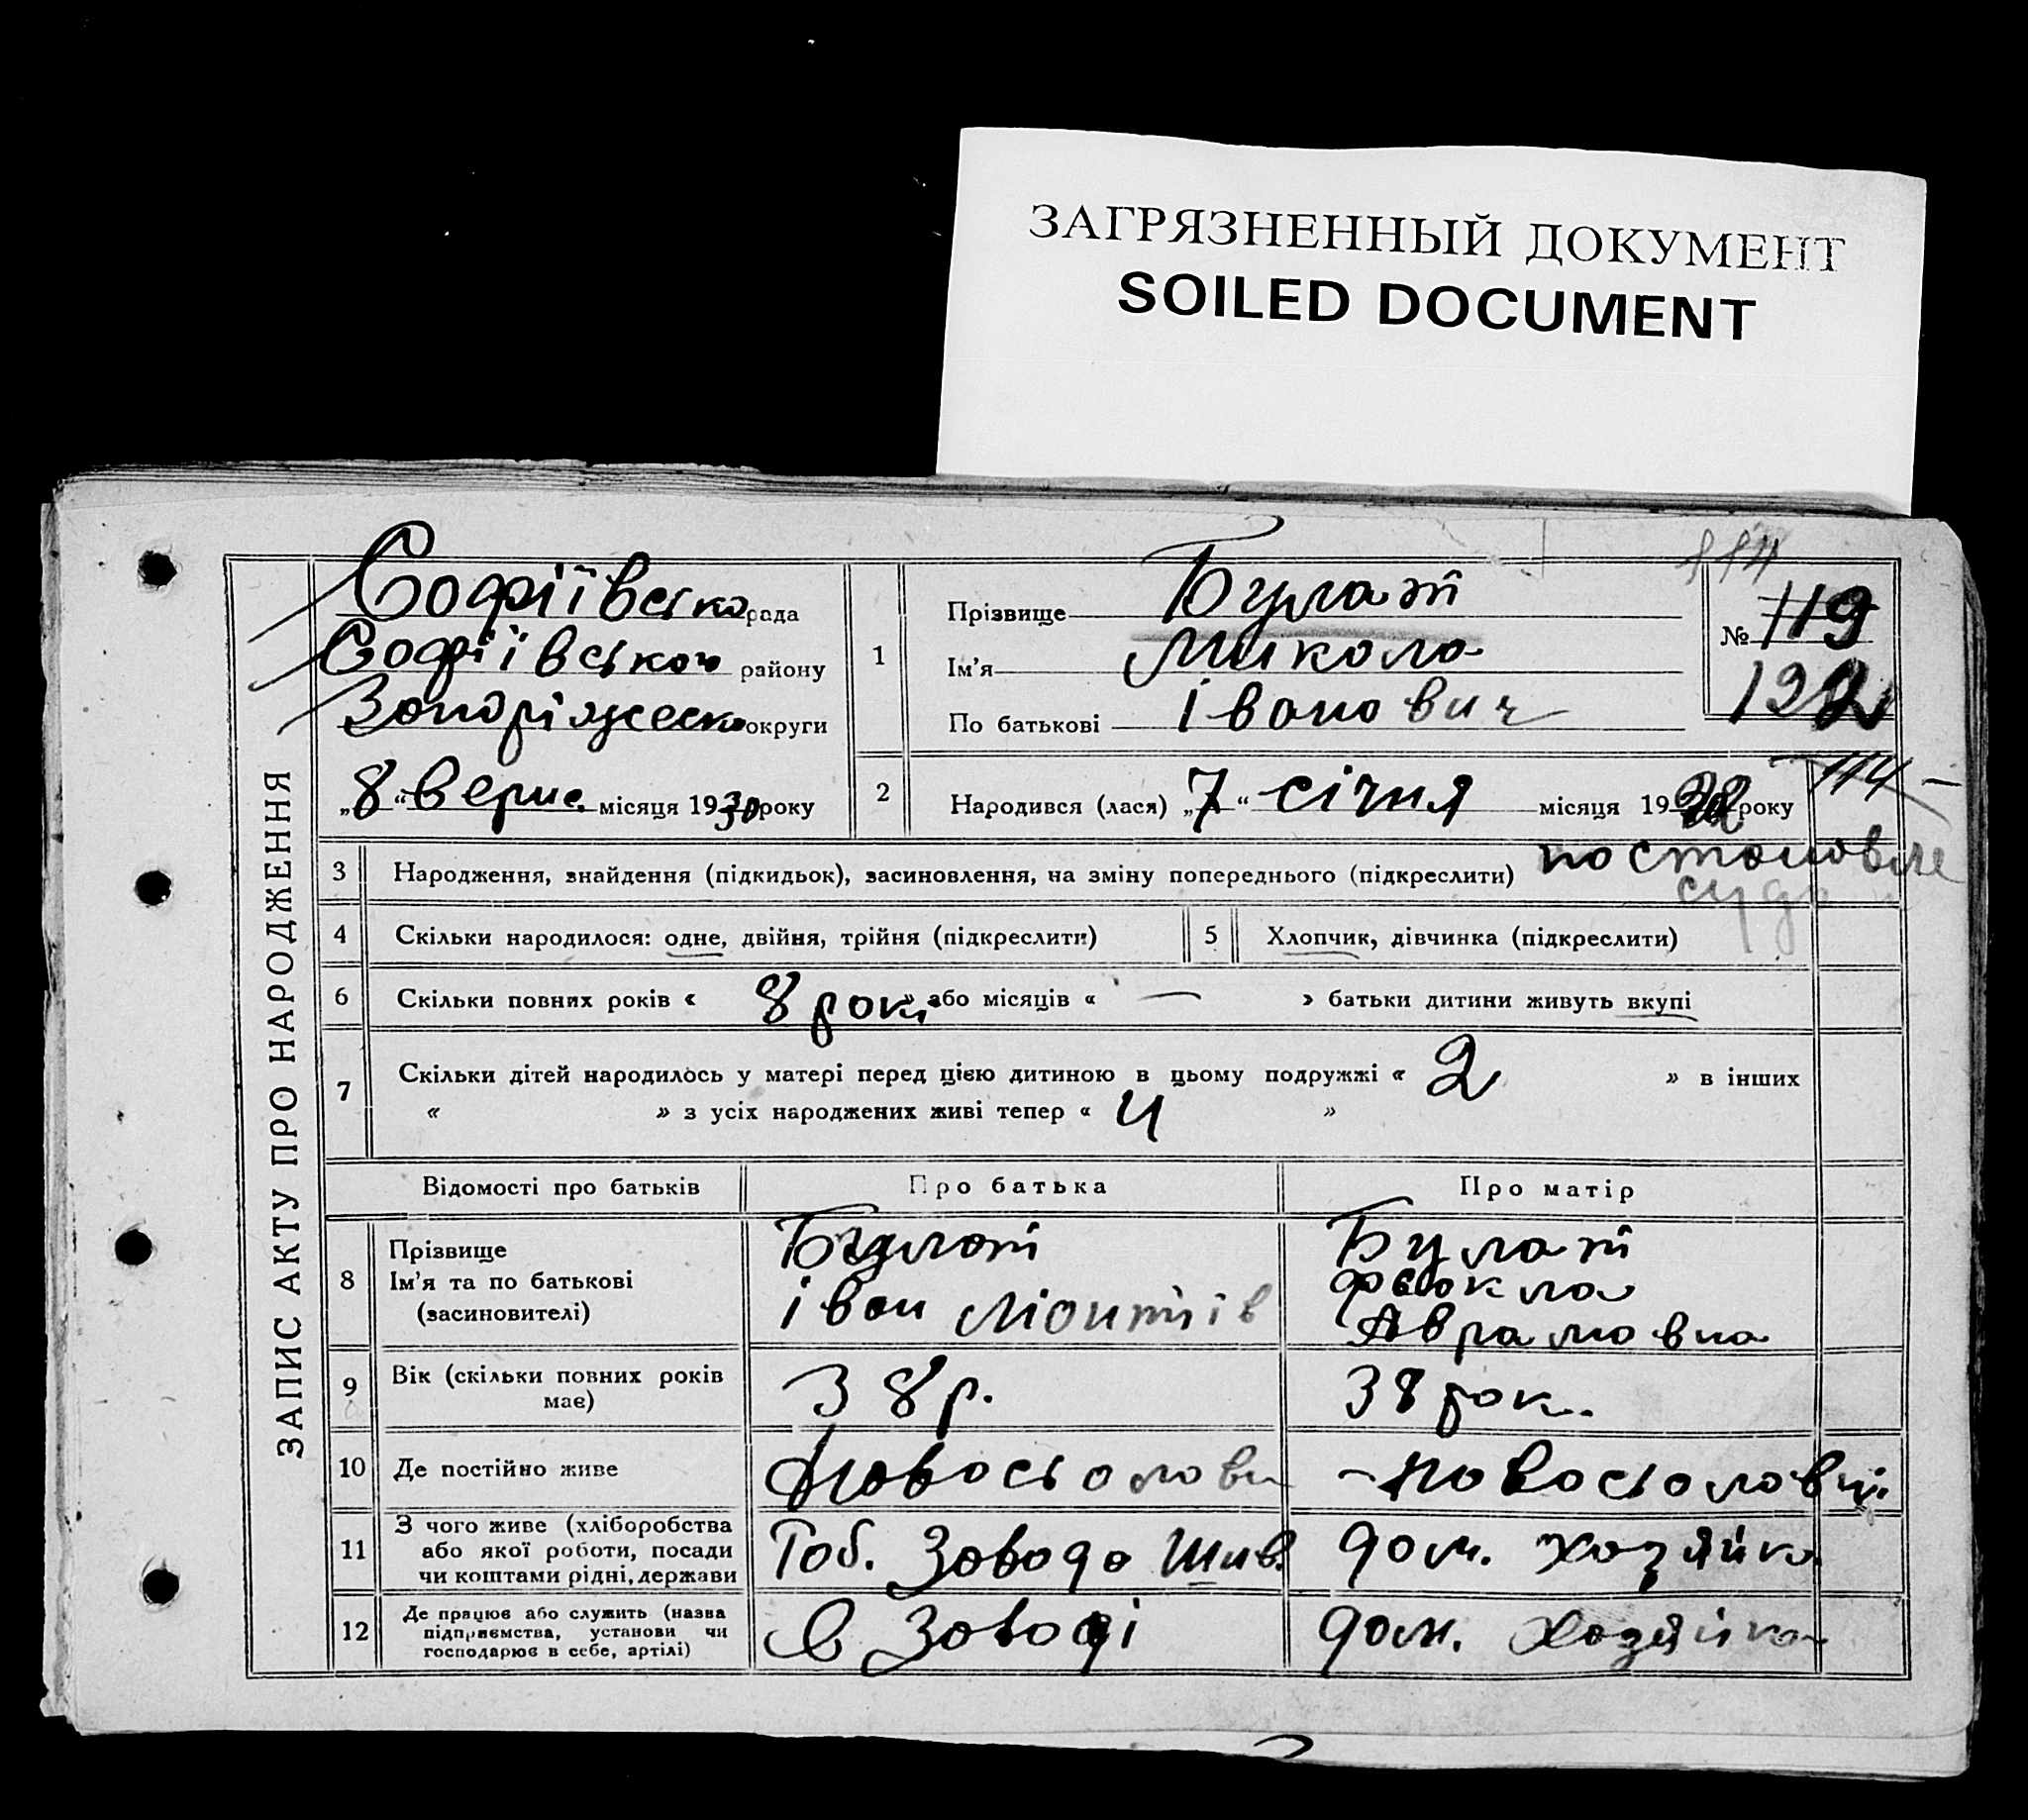 ЗАГРЯЗНЕННЫЙ ДОКУМЕНТ
SOILED DOCUMENT
114
ЗАПИС АКТУ ПРО НАРОДЖЕННЯ
Софіївсько рада
Софіївського району
Запоріжеско округи
„8“ верис. місяця 1930 року
1
Прізвище Булат
Ім'я Микола
По батькові Іванович
№ 119
192
2
Народився (лася) „7“ січня місяця 19 року
114
3 Народження, знайдення (підкидьок), засиновлення, на зміну попереднього (підкреслити) постоновле
суда
4 Скільки народилося: одне, двійня, трійня (підкреслити) 5 Хлопчик, дівчинка (підкреслити)
6 Скільки повних років « 8 рокі » або місяців « — » батьки дитини живуть вкупі
7 Скільки дітей народилось у матері перед цією дитиною в цьому подружжі « 2 » в інших
« » з усіх народжених живі тепер « 4 »
Відомості про батьків Про батька Про матір
8 Прізвище Булат Булат
Ім'я та по батькові Іван Феокла
(засновителі) Аврамовна
9 Вік (скільки повних років має) 38 р. 38 рок.
10 Де постійно живе Новосьоловк Новосьоловці
11 З чого живе (хліборобства або якої роботи, посади чи коштами рідні, держави Роб. Заводо Шив. дом. хозяйка
12 Де працює або служить (назва підприємства, установи чи господарює в себе, артілі) в Заводі дом. хозяйка